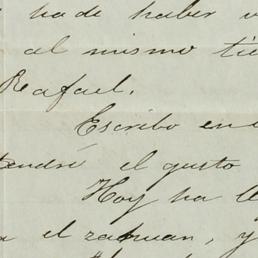 ha de haber
al mismo tie
Rafael.
Escribo en
tendré el gusto
Hoy ha le
el zahuan, y